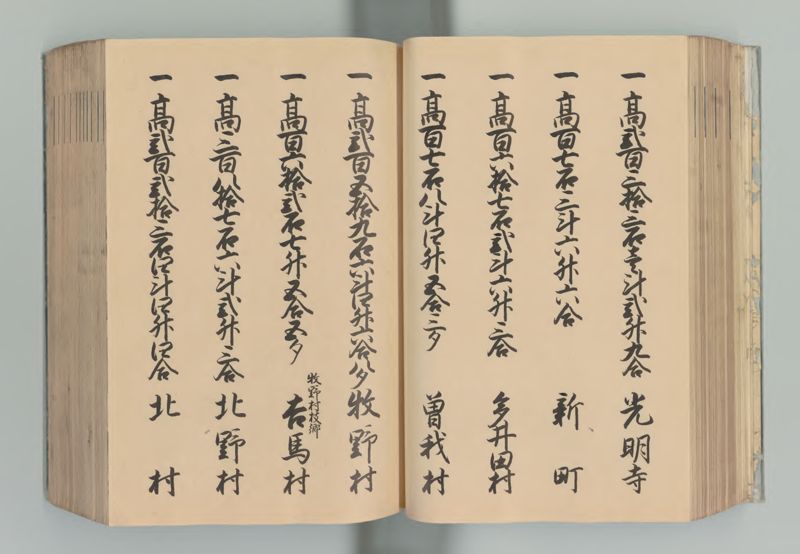 一高弐百三拾三石壱斗弐升九合 光明寺
一高百七石三斗六升六合 新町
一高百六拾七石弐斗六升三合 多井田村
一高百七石八斗四升五合三夕 曽我村
一高弐百五拾九石六斗四升六合八夕 牧野村
牧野村枝郷
一高百六拾弐石七升五合五夕 吉馬村
一高三百八拾七石六斗弐升三合 北野村
一高弐百弐拾三石四斗四升四合 北村